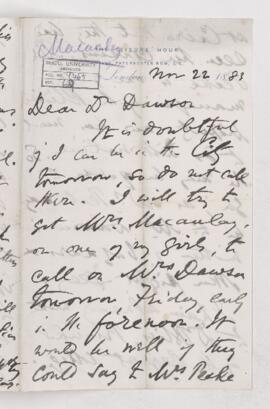 Macaulay
LEISURE HOUR
McGILL UNIVERSITY
ARCHIVES
ACC. NO.
REF.
PATERNOSTER ROW,
London Nov 22 1883
Dear Dr Dawson
It is doubtful
if I can be in the City
tomorrow, so do not call
there. I will try to
get Mrs. Macaulay,
or one of my girls, to
call on Mrs Dawson
tomorrow Friday, early
in the forenoon. It
would be well if they
could say to Mrs Peake